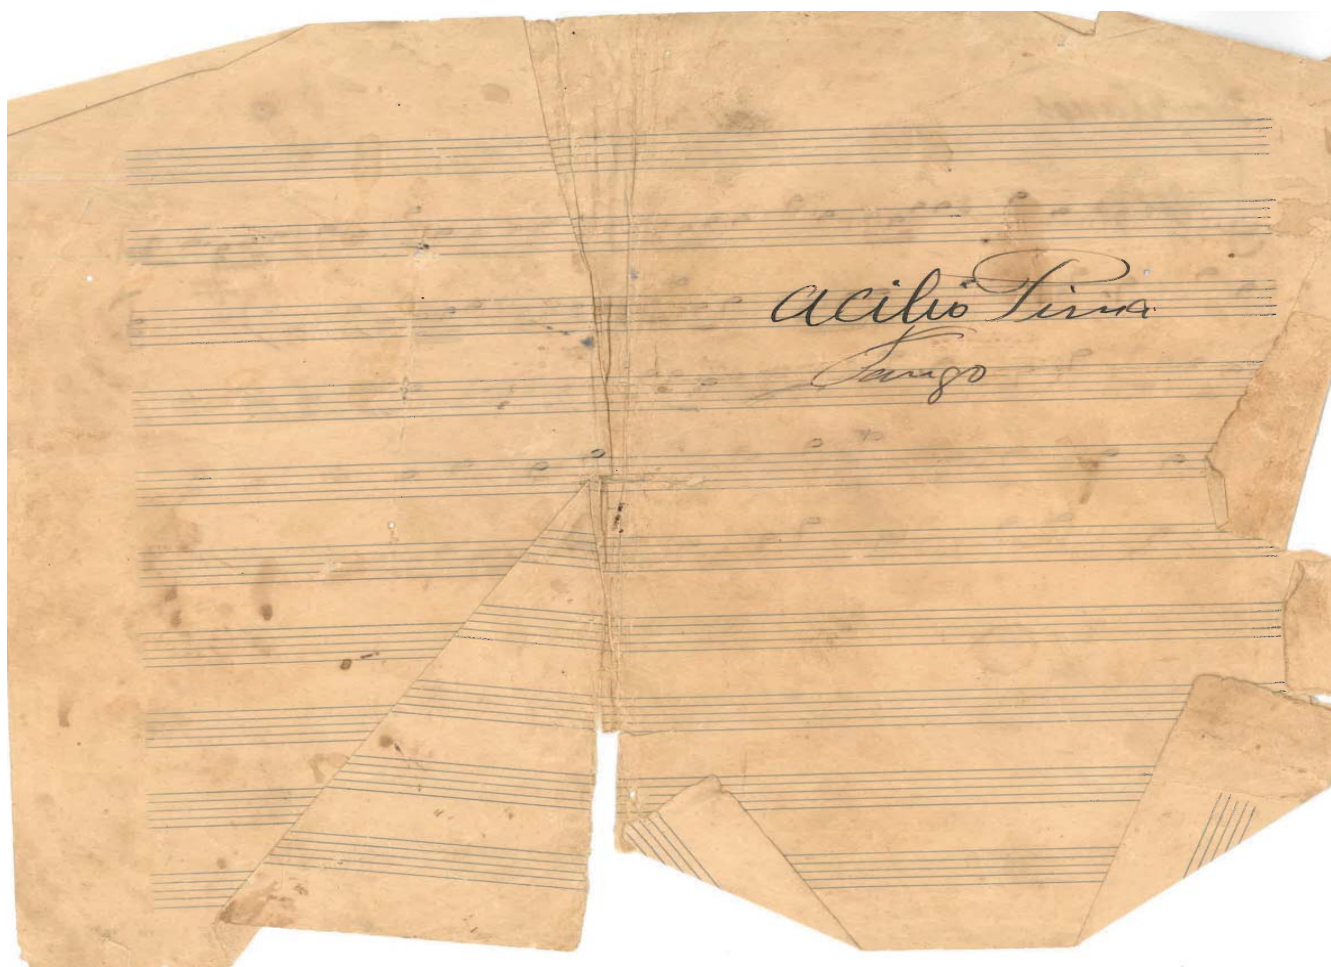 Acilio Pina
Tango